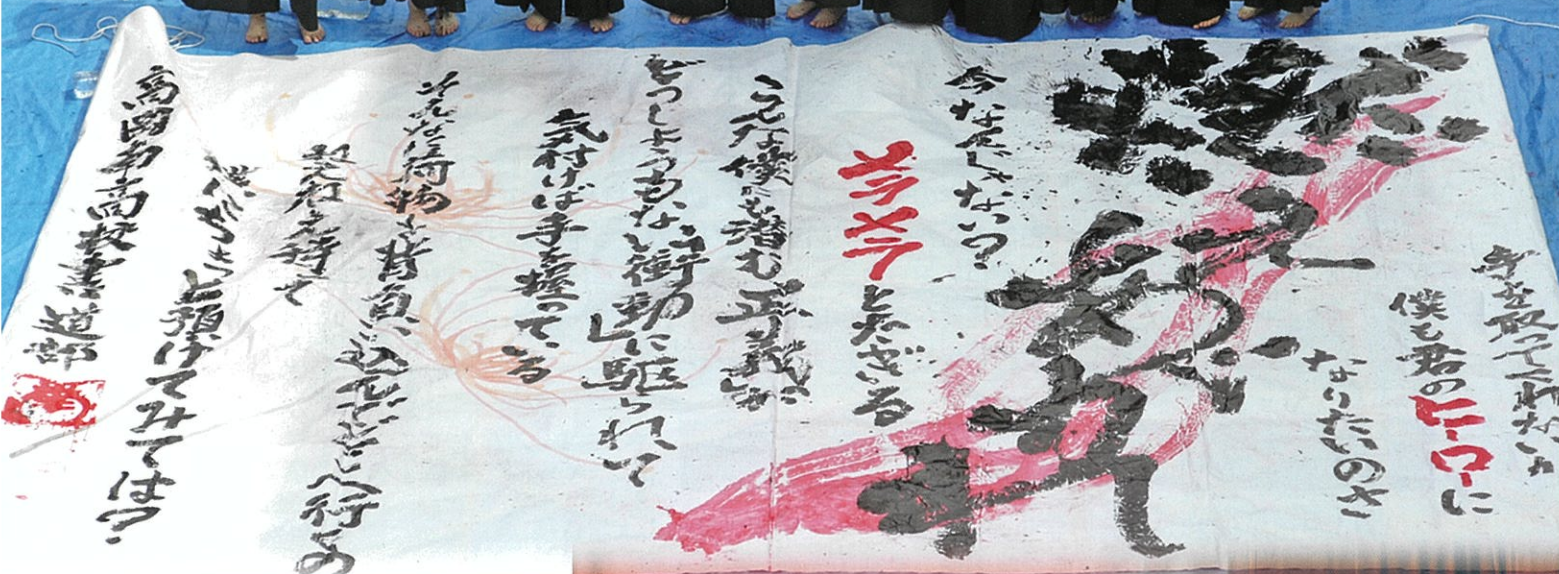 手を取ってくれないか
僕も君のヒーローに
なりたいのさ
今なんじゃない?
メラメラとたぎる
こんな僕にも潜む正義が
どうしようもない衝動に駆られて
気付けば手を握っている
そんな荷物を背負い込んでどこへ行くの
覚悟を持って
僕にちょっと預けてみては?
高岡南高校書道部